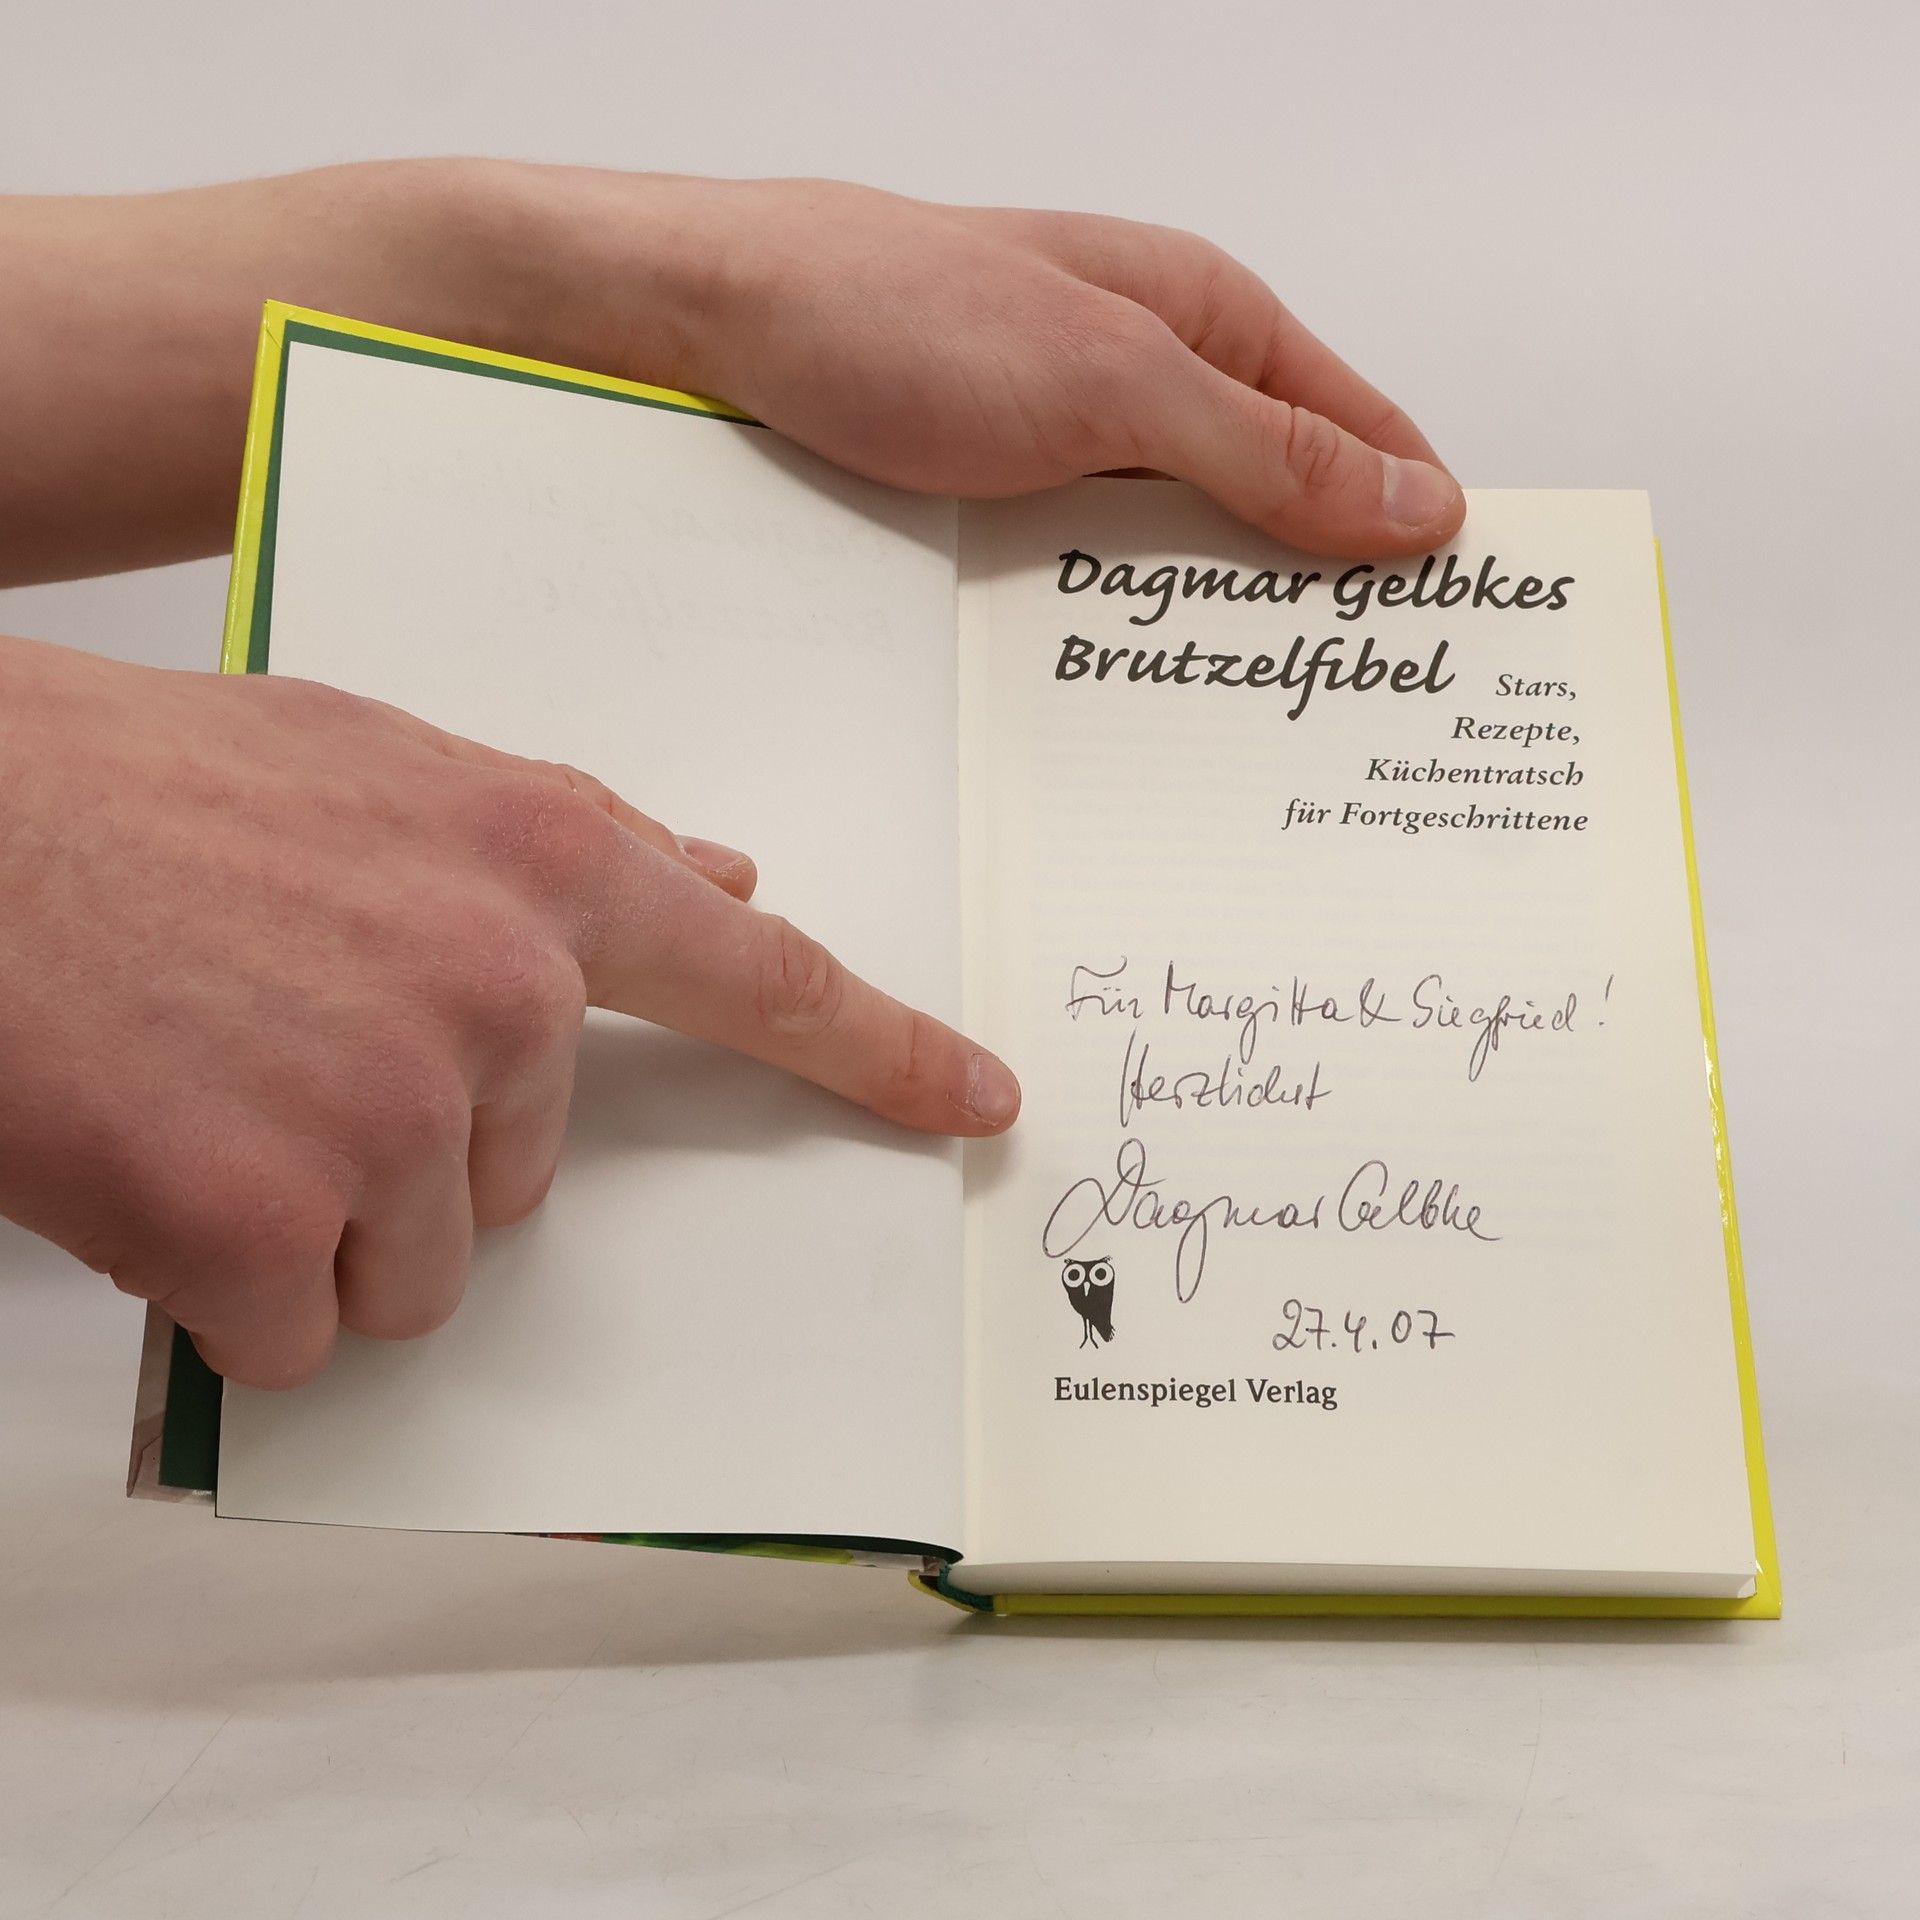 Dagmar Gelbkes
Brutzelfibel
Stars,
Rezepte,
Küchentratsch
für Fortgeschrittene
Für Margitta & Siegfried!
Herzlichst
Dagmar Gelbke
27.4.07
Eulenspiegel Verlag